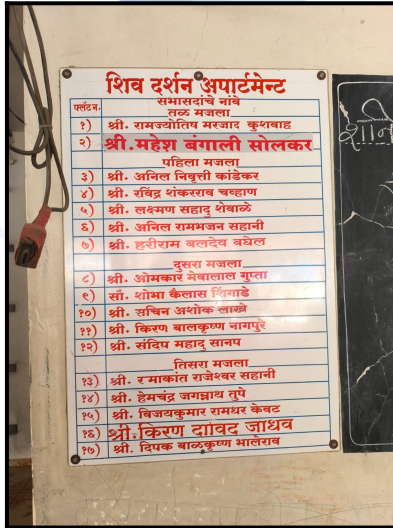 शिव दर्शन अपार्टमेन्ट
फ्लॅट नं. सभासदांचे नांवे
तळ मजला
१) श्री. रामज्योतिष मरजाद कुशवाह
२) श्री.महेश बंगाली सोलकर
पहिला मजला
३) श्री. अनिल निवृत्ती कांडेकर
४) श्री. रविंद्र शंकरराव चव्हाण
५) श्री. लक्ष्मण सहादु शेवाळे
६) श्री. अनिल रामभजन सहानी
७) श्री. हरीराम बलदेव वघेल
दुसरा मजला
८) श्री. ओमकार मेवालाल गुप्ता
९) सौ. शोभा कैलास शिंगाडे
१०) श्री. सचिन अशोक लाखे
११) श्री. किरण बालकृष्ण नागपुरे
१२) श्री. संदिप महादु सानप
तिसरा मजला
१३) श्री. रमाकांत राजेश्वर सहानी
१४) श्री. हेमचंद्र जगन्नाथ तुपे
१५) श्री. विजयकुमार रामधर केवट
१६) श्री.किरण दाविद जाधव
१७) श्री. दिपक बाळकृष्ण भालेराव